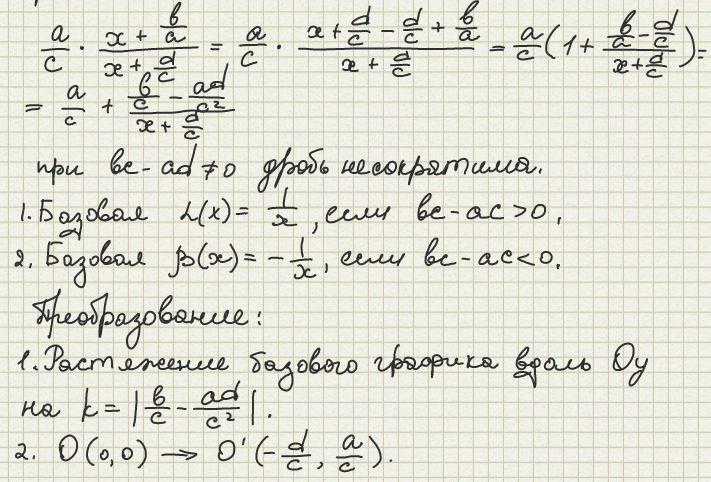 a/c · (x + b/a)/(x + d/c) = a/c · (x + d/c - d/c + b/a)/(x + d/c) = a/c (1 + (b/a - d/c)/(x + d/c)) =
= a/c + (b/c - ad/c²)/(x + d/c)
при bc - ad ≠ 0 дробь несократима.
1. Базовая α(x) = 1/x, если bc - ac > 0,
2. Базовая β(x) = - 1/x, если bc - ac < 0.
Преобразование:
1. Растяжение базового графика вдоль Oy
на k = |b/c - ad/c²|.
2. O(0,0) → O'(-d/c, a/c).